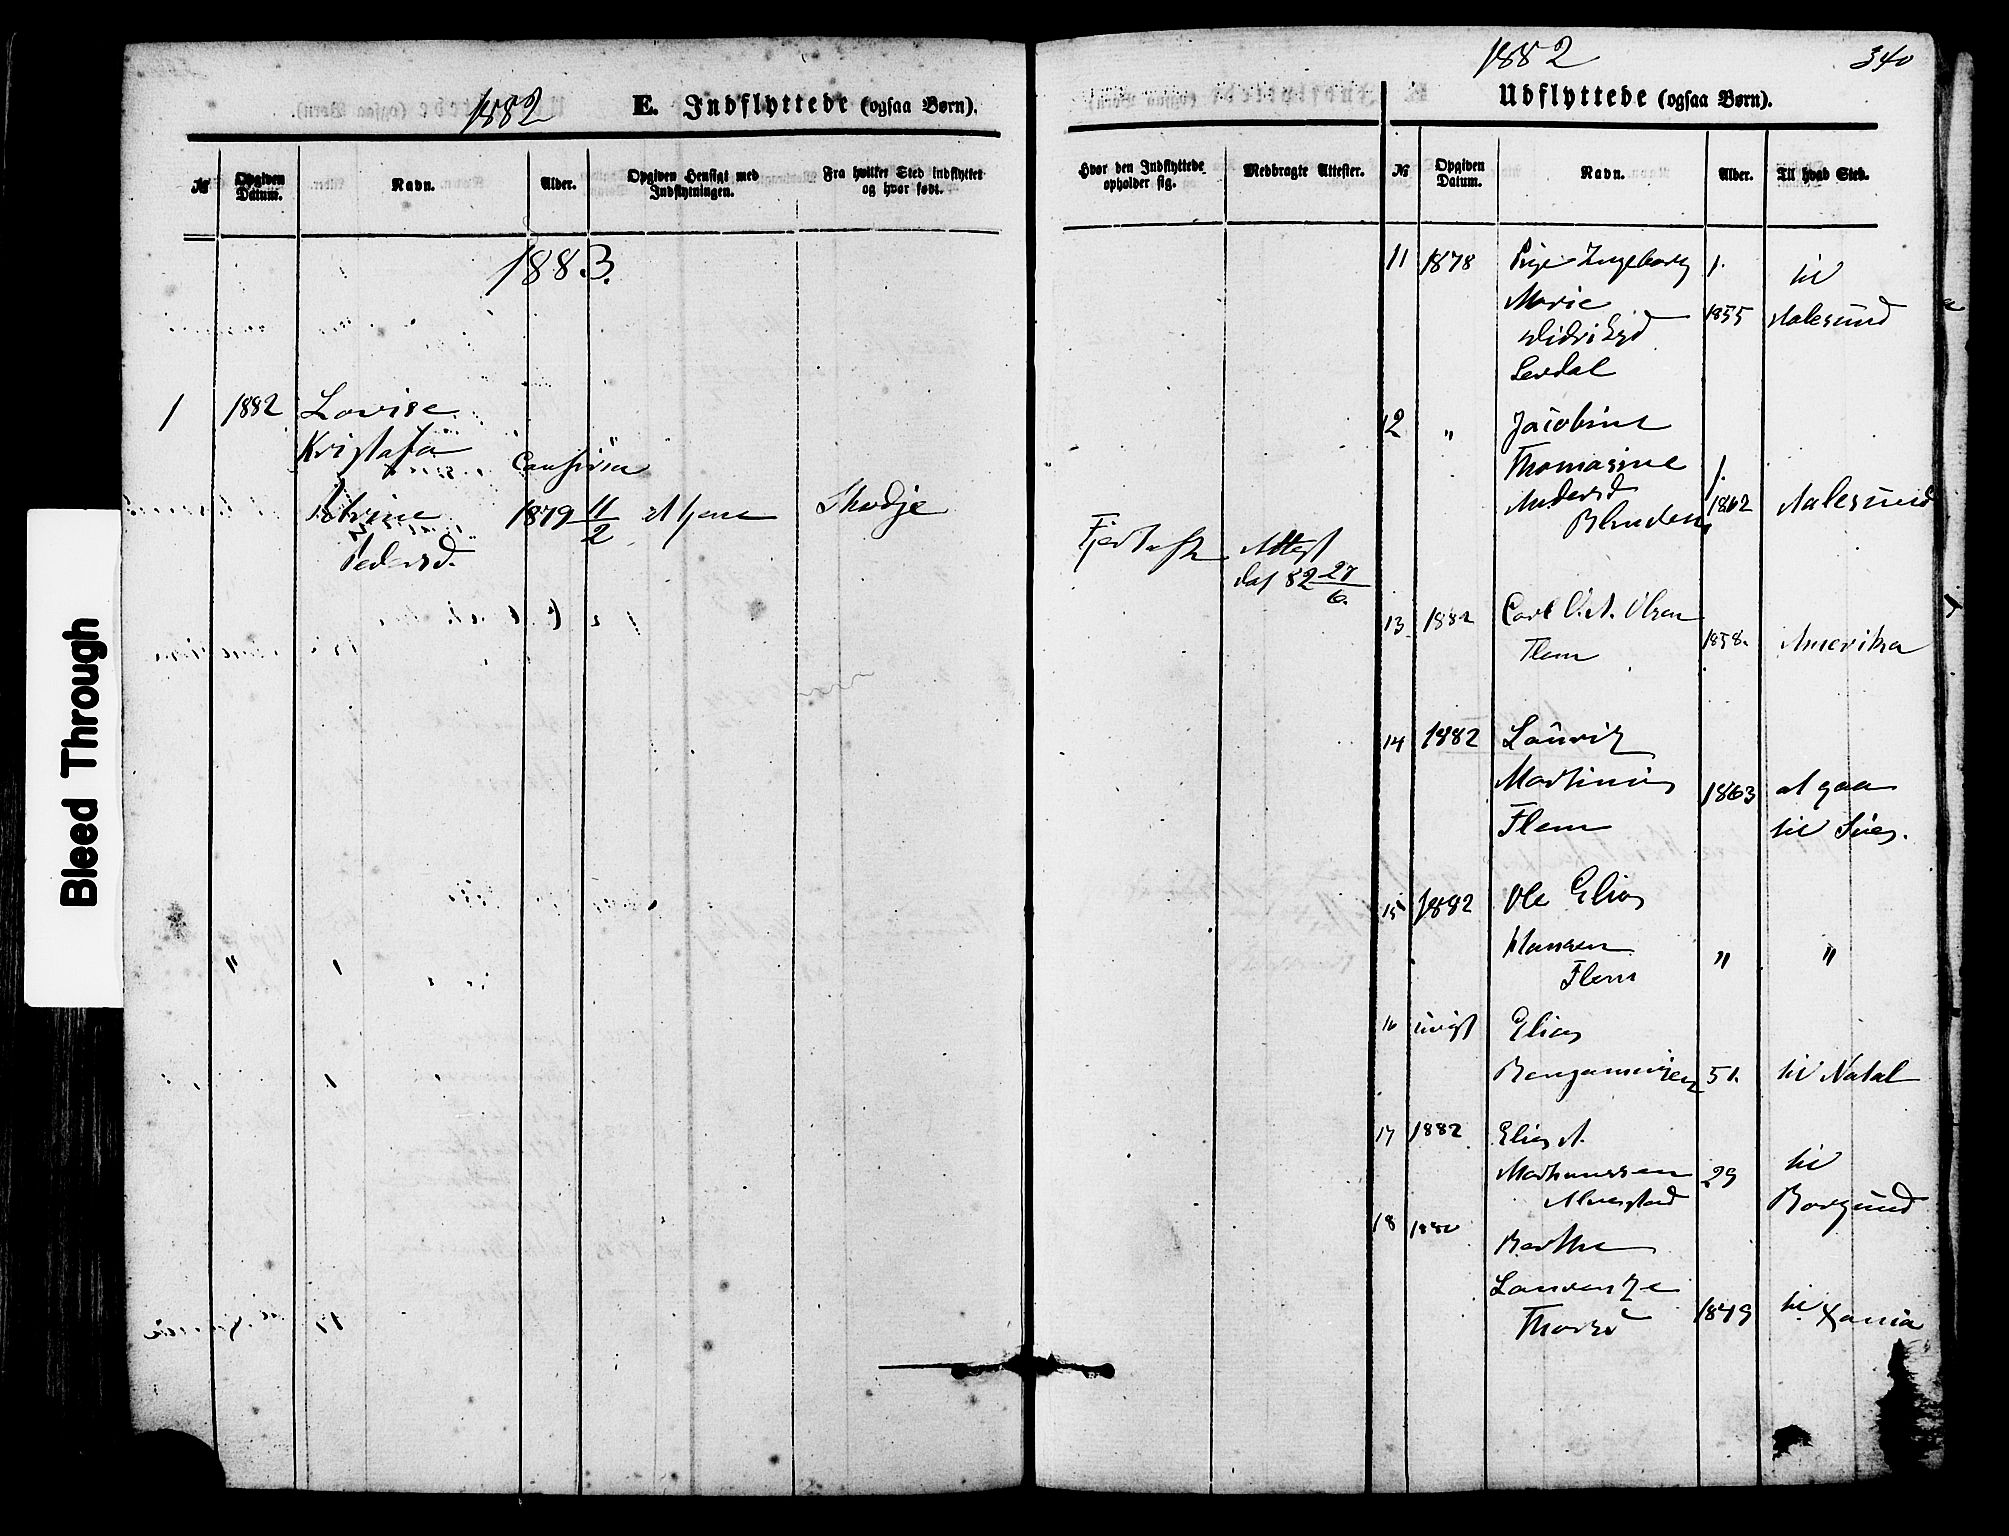 Bleed Through
1882
E. Indflyttede (ogsaa Børn).
№
Opgiven Datum.
Navn.
Alder.
Opgiven Hensigt med Indflytningen.
Fra hvilket Sted indflyttet og hvor født.
1883.
1 1882 Lovise
Kristafa
Confirm
Petrine 1879 11/2 at tjene Skodje
Pedersd.
Hvor den Indflyttede opholder sig.
Medbragte Attester.
Fjertoft Attest
dat 82 27/6.
1882
340
Udflyttede (ogsaa Børn).
№
Opgiven Datum.
Navn.
Alder.
Til hvad Sted.
11 1878 Pige Ingeborg f. til
Marie 1855 Aalesund
Didriksd
12 " Jacobine
Thomasine f.
Andersd 1862 Aalesund
13 1882 Carl O. A. Olsen
Flem 1858. Amerika
14 1882 Lauritz
Martinus 1863 at gaa
Flem til Søes.
15 1882 Ole Elias
Hansen " "
Flem
16 uvist Elias
Benjaminsen 51. til Natal
17 1882 Elias A.
Martinussen 29 til
Alnestad Borgund
18 1882 Berthe
Laurentze
Thorsd 1849 til Xania